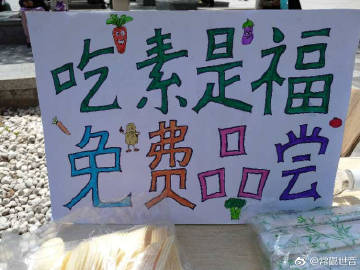 吃素是福
免费品尝
@常照世音